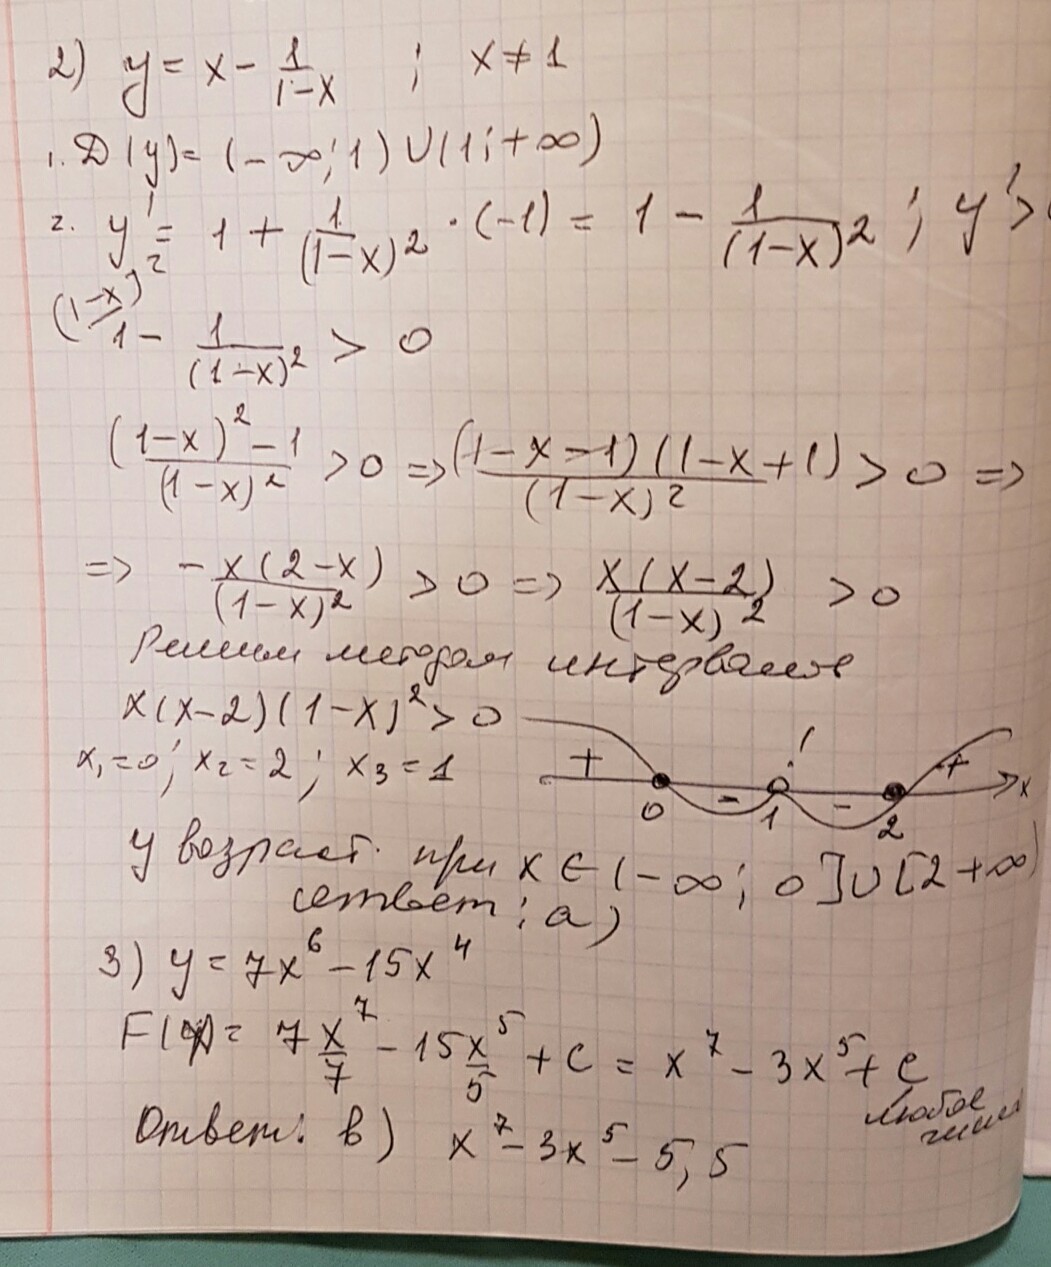 2) y = x - 1/(1-x) ; x ≠ 1
1. D(y) = (-∞; 1) ∪ (1; +∞)
2. y' = 1 + 1/(1-x)² · (-1) = 1 - 1/(1-x)² ; y' >
(1-x)²
1 - 1/(1-x)² > 0
((1-x)² - 1)/(1-x)² > 0 => ((1-x-1)(1-x+1))/(1-x)² > 0 =>
=> -x(2-x)/(1-x)² > 0 => x(x-2)/(1-x)² > 0
Решим методом интервалов
x(x-2)(1-x)² > 0
x₁=0; x₂=2; x₃=1
+ - - + x
0 1 2
y возраст. при x ∈ (-∞; 0] ∪ [2 +∞)
ответ: а)
3) y = 7x⁶ - 15x⁴
F(x) = 7 x⁷/7 - 15 x⁵/5 + C = x⁷ - 3x⁵ + C
любое
число
Ответ: в) x⁷ - 3x⁵ - 5,5